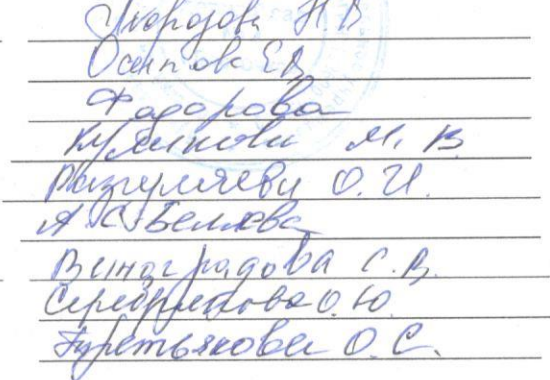 Морозова Н.В
Осипова Е.В
Федорова
Куликова М. В
Разгуляева О.И.
А.С. Беляева
Виноградова С.В.
Серебрякова О.Ю.
Третьякова О.С.